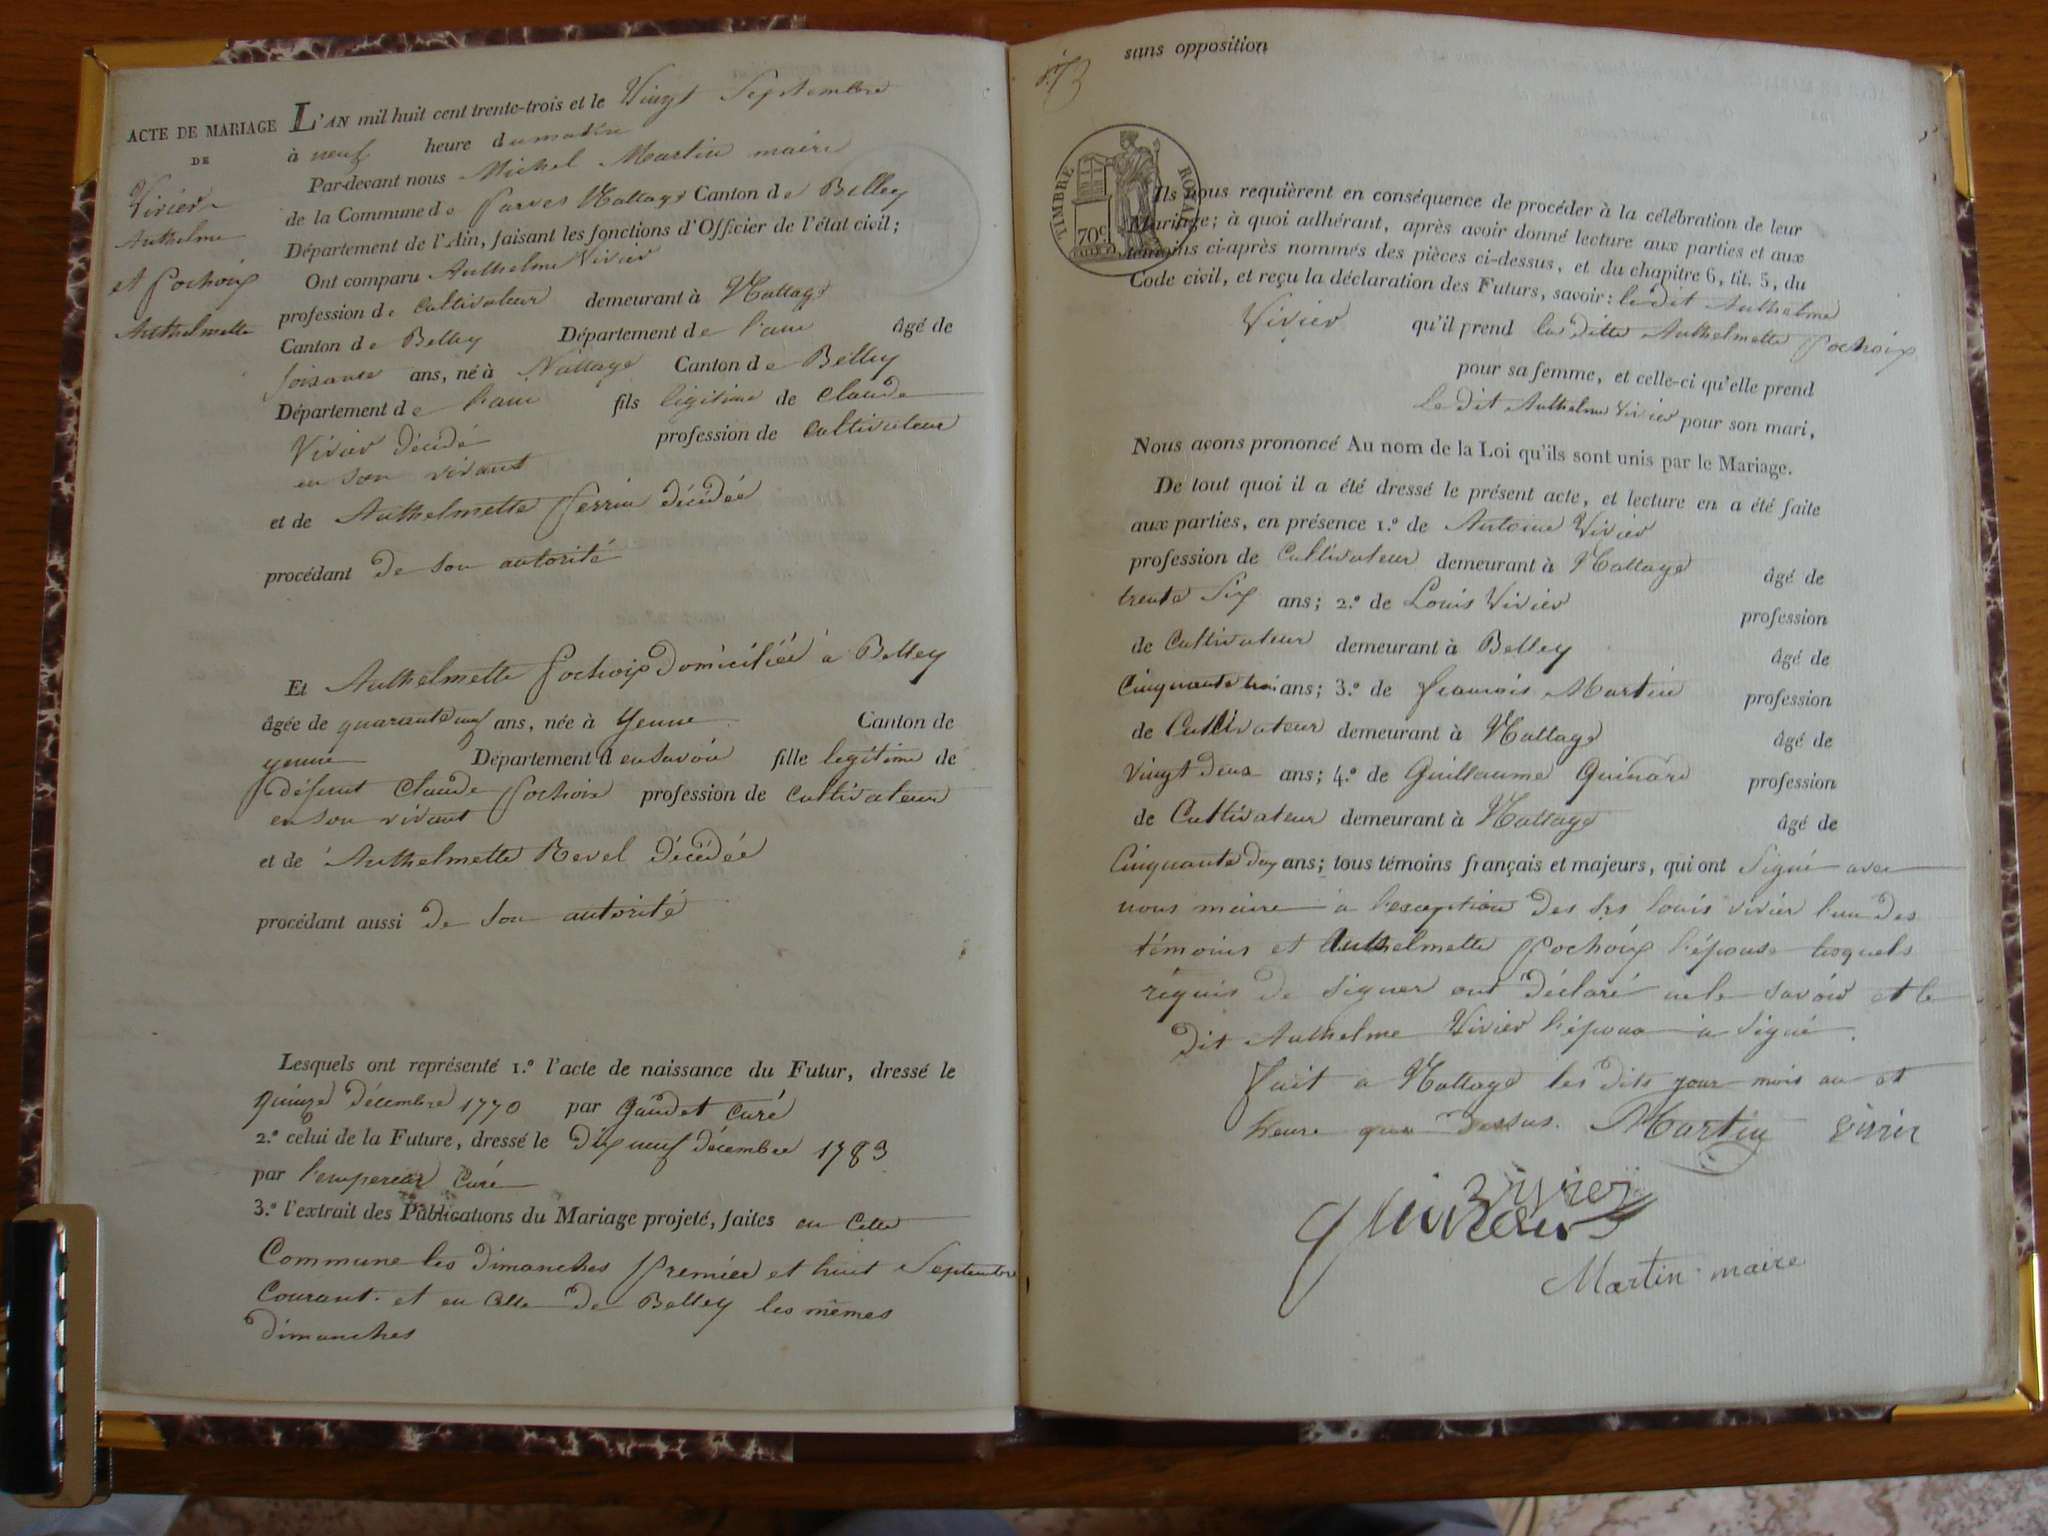 ACTE DE MARIAGE
DE
Vivier
Anthelme
et Pochoix
Anthelmette
L'AN mil huit cent trente-trois et le Vingt Septembre
à neuf heure du matin
Par-devant nous Michel Martin maire
de la Commune de Parves Nattage Canton de Belley
Département de l'Ain, faisant les fonctions d'Officier de l'état civil;
Ont comparu Anthelme Vivier
profession de cultivateur demeurant à Nattage
Canton de Belley Département de l'ain âgé de
soixante ans, né à Nattage Canton de Belley
Département de l'ain fils légitime de Claude
Vivier décédé profession de cultivateur
en son vivant
et de Anthelmette Perrin décédée
procédant de son autorité
Et Anthelmette Pochoix domiciliée à Belley
âgée de quarante neuf ans, née à Yenne Canton de
yenne Département de en Savoie fille legitime de
défunt Claude Pochoix profession de cultivateur
en son vivant
et de Anthelmette Revel décédée
procédant aussi de son autorité
Lesquels ont représenté 1.º l'acte de naissance du Futur, dressé le
quinze décembre 1770 par Gaudet curé
2.º celui de la Future, dressé le dix neuf décembre 1783
par l'empereur curé
3.º l'extrait des Publications du Mariage projeté, faites en cette
Commune les dimanches premier et huit Septembre
Courant. et en celle de Belley les mêmes
dimanches
sans opposition
TIMBRE ROYAL
70c
Ils nous requièrent en conséquence de procéder à la célébration de leur
Mariage; à quoi adhérant, après avoir donné lecture aux parties et aux
témoins ci-après nommés des pièces ci-dessus, et du chapitre 6, tit. 5, du
Code civil, et reçu la déclaration des Futurs, savoir: le dit Anthelme
Vivier qu'il prend la ditte Anthelmette Pochoix
pour sa femme, et celle-ci qu'elle prend
le dit Anthelme Vivier pour son mari,
Nous avons prononcé Au nom de la Loi qu'ils sont unis par le Mariage.
De tout quoi il a été dressé le présent acte, et lecture en a été faite
aux parties, en présence 1.º de Antoine Vivier
profession de Cultivateur demeurant à Nattage âgé de
trente six ans; 2.º de Louis Vivier profession
de Cultivateur demeurant à Belley âgé de
Cinquante trois ans; 3.º de francois Martin profession
de Cultivateur demeurant à Nattage âgé de
vingt deux ans; 4.º de Guillaume Guinard profession
de Cultivateur demeurant à Nattage âgé de
Cinquante dix ans; tous témoins français et majeurs, qui ont signé avec
nous maire à l'exception des srs louis vivier l'un des
témoins et Anthelmette Pochoix l'épouse lesquels
requis de signer ont déclaré ne le savoir et le
dit Anthelme Vivier l'époux à signé.
fait a Nattage les dits jour mois an et
heure que dessus. Martin vivier
vivier
Martin maire